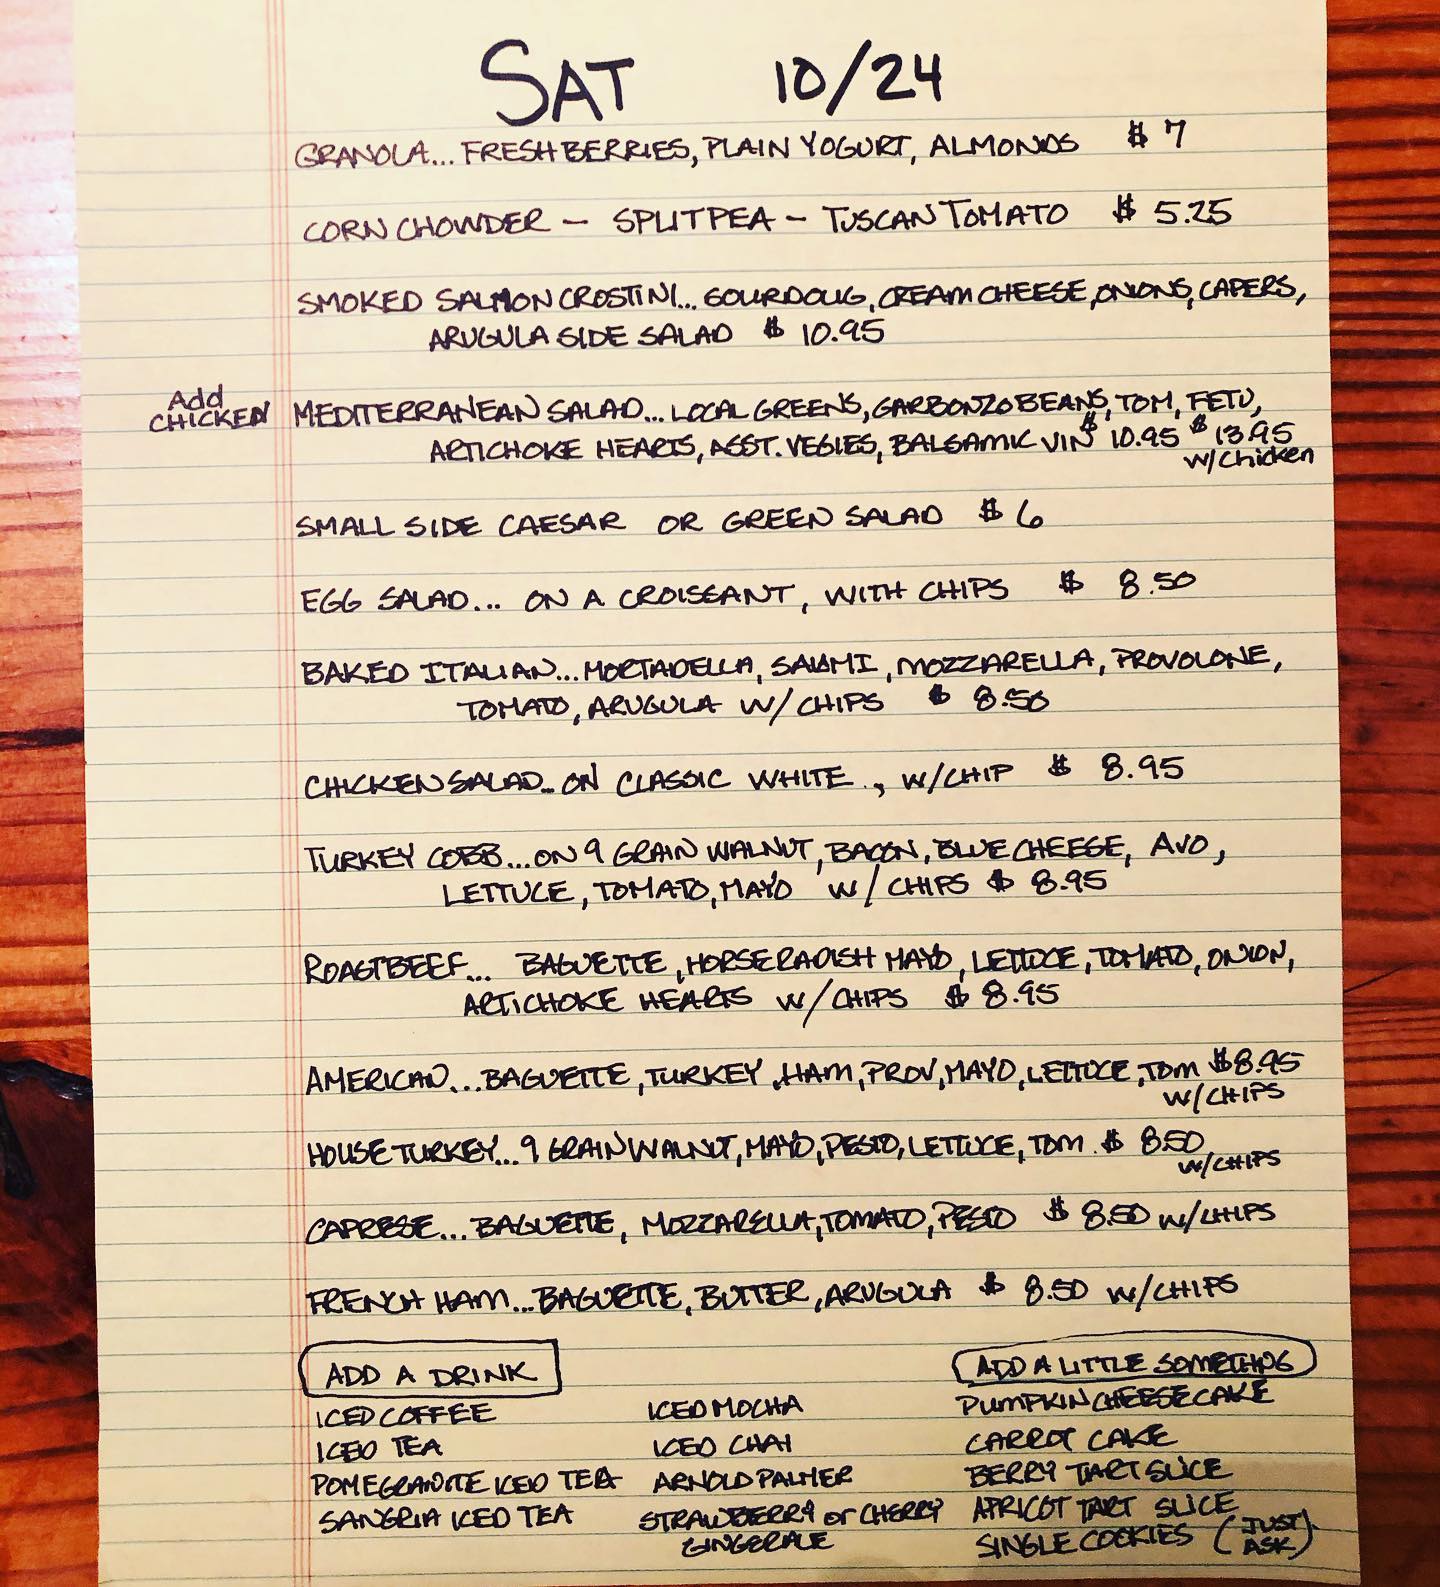 SAT 10/24
GRANOLA... FRESH BERRIES, PLAIN YOGURT, ALMONDS $ 7
CORN CHOWDER - SPLIT PEA - TUSCAN TOMATO $ 5.25
SMOKED SALMON CROSTINI... SOURDOUG, CREAM CHEESE, ONIONS, CAPERS,
ARUGULA SIDE SALAD $ 10.95
Add
CHICKEN
MEDITERRANEAN SALAD... LOCAL GREENS, GARBONZO BEANS, TOM, FETA,
ARTICHOKE HEARTS, ASST. VEGIES, BALSAMIC VIN $ 10.95 $ 13.95
w/Chicken
SMALL SIDE CAESAR OR GREEN SALAD $ 6
EGG SALAD... ON A CROISSANT, WITH CHIPS $ 8.50
BAKED ITALIAN... MORTADELLA, SALAMI, MOZZARELLA, PROVOLONE,
TOMATO, ARUGULA W/ CHIPS $ 8.50
CHICKEN SALAD... ON CLASSIC WHITE., W/CHIP $ 8.95
TURKEY COBB... ON 9 GRAIN WALNUT, BACON, BLUE CHEESE, AVO,
LETTUCE, TOMATO, MAYO W/ CHIPS $ 8.95
ROASTBEEF... BAGUETTE, HORSERADISH MAYO, LETTUCE, TOMATO, ONION,
ARTICHOKE HEARTS W/CHIPS $ 8.95
AMERICAN... BAGUETTE, TURKEY, HAM, PROV, MAYO, LETTUCE, TOM $8.95
W/CHIPS
HOUSE TURKEY... 9 GRAIN WALNUT, MAYO, PESTO, LETTUCE, TOM. $ 8.50
W/CHIPS
CAPRESE... BAGUETTE, MOZZARELLA, TOMATO, PESTO $ 8.50 W/CHIPS
FRENCH HAM... BAGUETTE, BUTTER, ARUGULA $ 8.50 W/CHIPS
ADD A DRINK
ICED COFFEE
ICED TEA
POMEGRANITE ICED TEA
SANGRIA ICED TEA
ICED MOCHA
ICED CHAI
ARNOLD PALMER
STRAWBERRY or CHERRY
GINGERALE
ADD A LITTLE SOMETHING
PUMPKIN CHEESECAKE
CARROT CAKE
BERRY TART SLICE
APRICOT TART SLICE
SINGLE COOKIES (JUST
ASK)